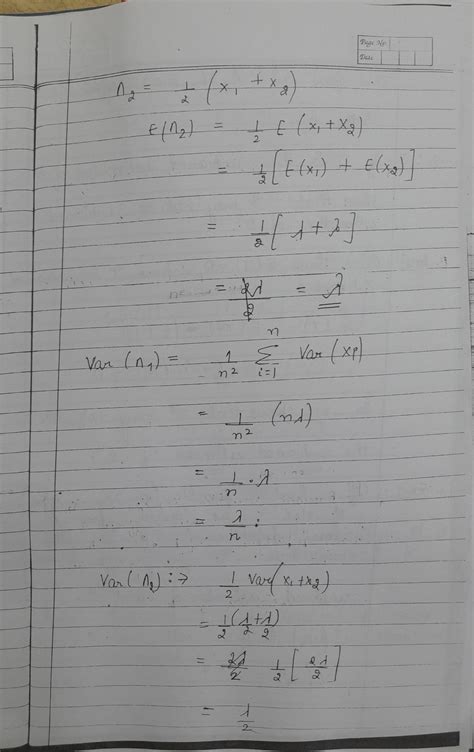 Page No:
Date
Λ₂ = 1/2 (x₁ + x₂)
E(Λ₂) = 1/2 E (x₁ + x₂)
= 1/2 [E(x₁) + E(x₂)]
= 1/2 [λ + λ]
= 2λ/2 = λ
Var (Λ₁) = 1/n² n∑i=1 Var (xi)
= 1/n² (nλ)
= 1/n · λ
= λ/n :
Var (Λ₂) :→ 1/2 Var(x₁+x₂)
= 1/2 (λ/2 + λ/2)
= 2λ/2 1/2 [2λ/2]
= λ/2